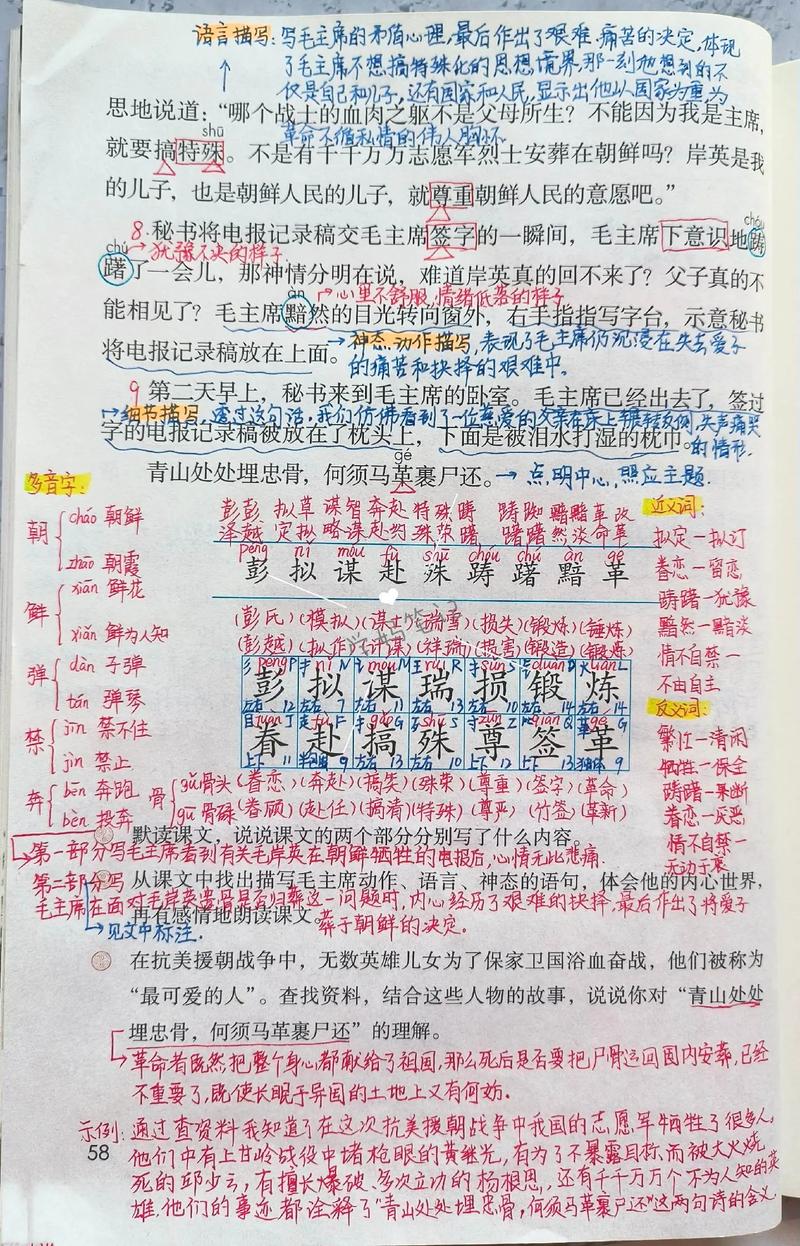 语言描写:写毛主席的矛盾心理,最后作出了艰难、痛苦的决定,体现
了毛主席不想搞特殊化的思想境界,那一刻他想到的不
仅是自己和儿子,还有国家和人民,显示出他以国家为重为
革命不徇私情的伟人胸怀
思地说道:“哪个战士的血肉之躯不是父母所生?不能因为我是主席,
shū
就要搞特殊。不是有千千万万志愿军烈士安葬在朝鲜吗?岸英是我
的儿子,也是朝鲜人民的儿子,就尊重朝鲜人民的意愿吧。”
chóu
8.秘书将电报记录稿交毛主席签字的一瞬间,毛主席下意识地踌
chú
→犹豫不决的样子
躇了一会儿,那神情分明在说,难道岸英真的回不来了?父子真的不
àn
→心里不舒服,情绪低落的样子
能相见了?毛主席黯然的目光转向窗外,右手指指写字台,示意秘书
将电报记录稿放在上面。→神态、动作描写,表现了毛主席仍沉浸在失去爱子
的痛苦和抉择的艰难中。
9 第二天早上,秘书来到毛主席的卧室。毛主席已经出去了,签过
→细节描写,透过这句话,我们仿佛看到了一位慈爱的父亲在床上辗转反侧,失声痛哭
的情形.
字的电报记录稿被放在了枕头上,下面是被泪水打湿的枕巾。
gé
青山处处埋忠骨,何须马革裹尸还。→点明中心,照应主题.
多音字:
朝 cháo 朝鲜
zhāo 朝霞
鲜 xiān 鲜花
xiǎn 鲜为人知
弹 dàn 子弹
tán 弹琴
禁 jīn 禁不住
jìn 禁止
奔 bēn 奔跑
bèn 投奔
骨 gǔ 骨头
gū 骨碌
彭彭 拟草 谋智 奔赴 特殊 踌 踌踟 黯黯 革改
泽越 定拟 略谋 赴约 殊荣 躇 躇躇 然淡 命革
péng nǐ móu fù shū chóu chú àn gé
彭 拟 谋 赴 殊 踌 躇 黯 革
(彭氏)(模拟)(谋士)(瑞雪)(损失)(锻炼)(锤炼)
(彭越)(拟作)(计谋)(祥瑞)(损害)(锻造)(锻炼)
学霸笔记
彡péngP 扌nǐN 讠móuM 王ruìR 扌sǔnS 钅duànD 火liànL
彭 拟 谋 瑞 损 锻 炼
左右 12 左右 7 左右 11 左右 13 左右 10 左右 14
目juànJ 走fùF 扌gǎoG 歹shūS 寸zūnZ ⺮qiānQ 革géG
眷 赴 搞 殊 尊 签 革
上下 11 半包围 9 左右 13 左右 10 上下 12 上下 13 独体 9
(眷恋)(奔赴)(搞笑)(殊荣)(尊重)(签字)(革命)
(眷顾)(赴任)(搞清)(特殊)(尊严)(竹签)(革新)
近义词:
拟定—拟订
眷恋—留恋
踌躇—犹豫
黯然—黯淡
情不自禁—
不由自主
反义词:
繁忙—清闲
牺牲—保全
踌躇—果断
眷恋—厌恶
情不自禁—
无动于衷
默读课文,说说课文的两个部分分别写了什么内容。
第一部分写毛主席看到有关毛岸英在朝鲜牺牲的电报后,心情无比悲痛.
第二部分写
从课文中找出描写毛主席动作、语言、神态的语句,体会他的内心世界,
毛主席在面对毛岸英遗骨是否归葬这一问题时,内心经历了艰难的抉择,最后作出了将爱子
再有感情地朗读课文。
葬于朝鲜的决定。
见文中标注.
在抗美援朝战争中,无数英雄儿女为了保家卫国浴血奋战,他们被称为
“最可爱的人”。查找资料,结合这些人物的故事,说说你对“青山处处
埋忠骨,何须马革裹尸还”的理解。
革命者既然把整个身心都献给了祖国,那么死后是否要把尸骨运回国内安葬,已经
不重要了,既使长眠于异国的土地上又有何妨.
示例:通过查资料我知道了在这次抗美援朝战争中我国的志愿军牺牲了很多人.
58
他们中有上甘岭战役中堵枪眼的黄继光,有为了不暴露目标,而被大火烧
死的邱少云,有擅长爆破、多次立功的杨根思,还有千千万万个不为人知的英
雄.他们的事迹都诠释了“青山处处埋忠骨,何须马革裹尸还”这两句诗的含义.